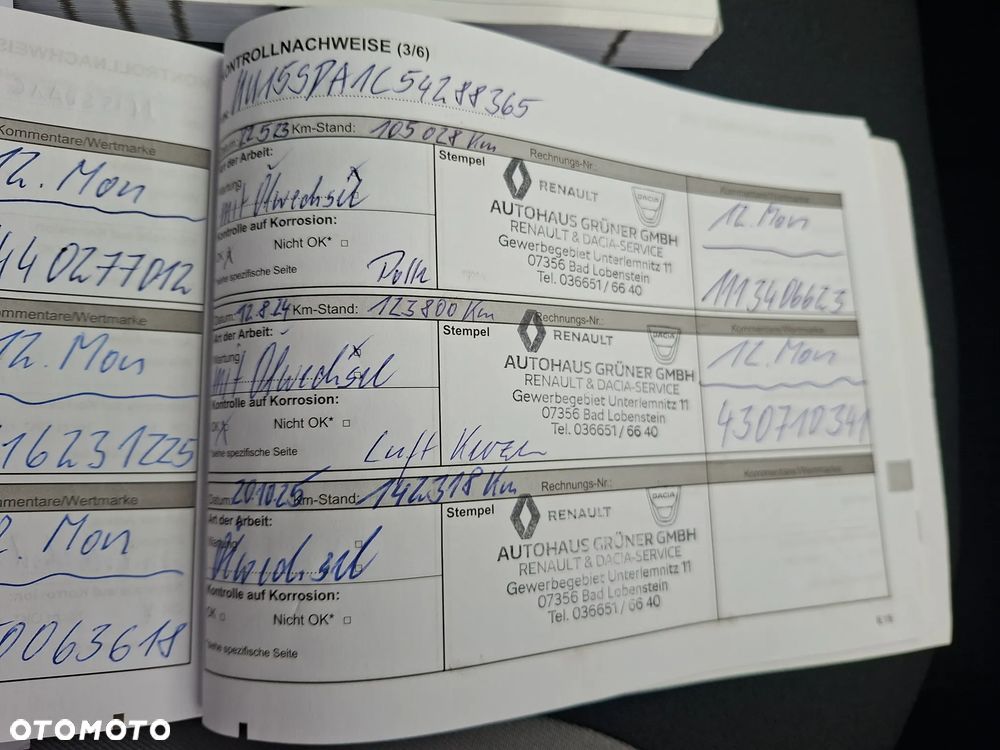 Kommentare/Wertmarke
12. Mon
440277012
Kommentare/Wertmarke
12. Mon
16231225
mmentare/Wertmarke
2. Mon
0063618
ONTROLLNACHWEISE (3/6)
Datum: 22.5.23 Km-Stand: 105028 Km
Art der Arbeit:
Wartung
mit Ölwechsel
Kontrolle auf Korrosion:
OK X Nicht OK* □
siehe spezifische Seite
Stempel
Rechnungs-Nr.:
RENAULT
DACIA
AUTOHAUS GRÜNER GMBH
RENAULT & DACIA-SERVICE
Gewerbegebiet Unterlemnitz 11
07356 Bad Lobenstein
Tel. 036651 / 66 40
Kommentare/Wertmarke
12. Mon
1113406623
Datum: 12.8.24 Km-Stand: 123800 Km
Art der Arbeit:
Wartung
mit Ölwechsel
Kontrolle auf Korrosion:
OK X Nicht OK* □
siehe spezifische Seite
Luft Kerzen
Stempel
Rechnungs-Nr.:
RENAULT
DACIA
AUTOHAUS GRÜNER GMBH
RENAULT & DACIA-SERVICE
Gewerbegebiet Unterlemnitz 11
07356 Bad Lobenstein
Tel. 036651 / 66 40
Kommentare/Wertmarke
12. Mon
430710341
Datum: 20.10.25 Km-Stand: 142318 Km
Art der Arbeit:
Wartung
Ölwechsel
Kontrolle auf Korrosion:
OK □ Nicht OK* □
siehe spezifische Seite
Stempel
Rechnungs-Nr.:
RENAULT
DACIA
AUTOHAUS GRÜNER GMBH
RENAULT & DACIA-SERVICE
Gewerbegebiet Unterlemnitz 11
07356 Bad Lobenstein
Tel. 036651 / 66 40
Kommentare/Wertmarke
OTOMOTO